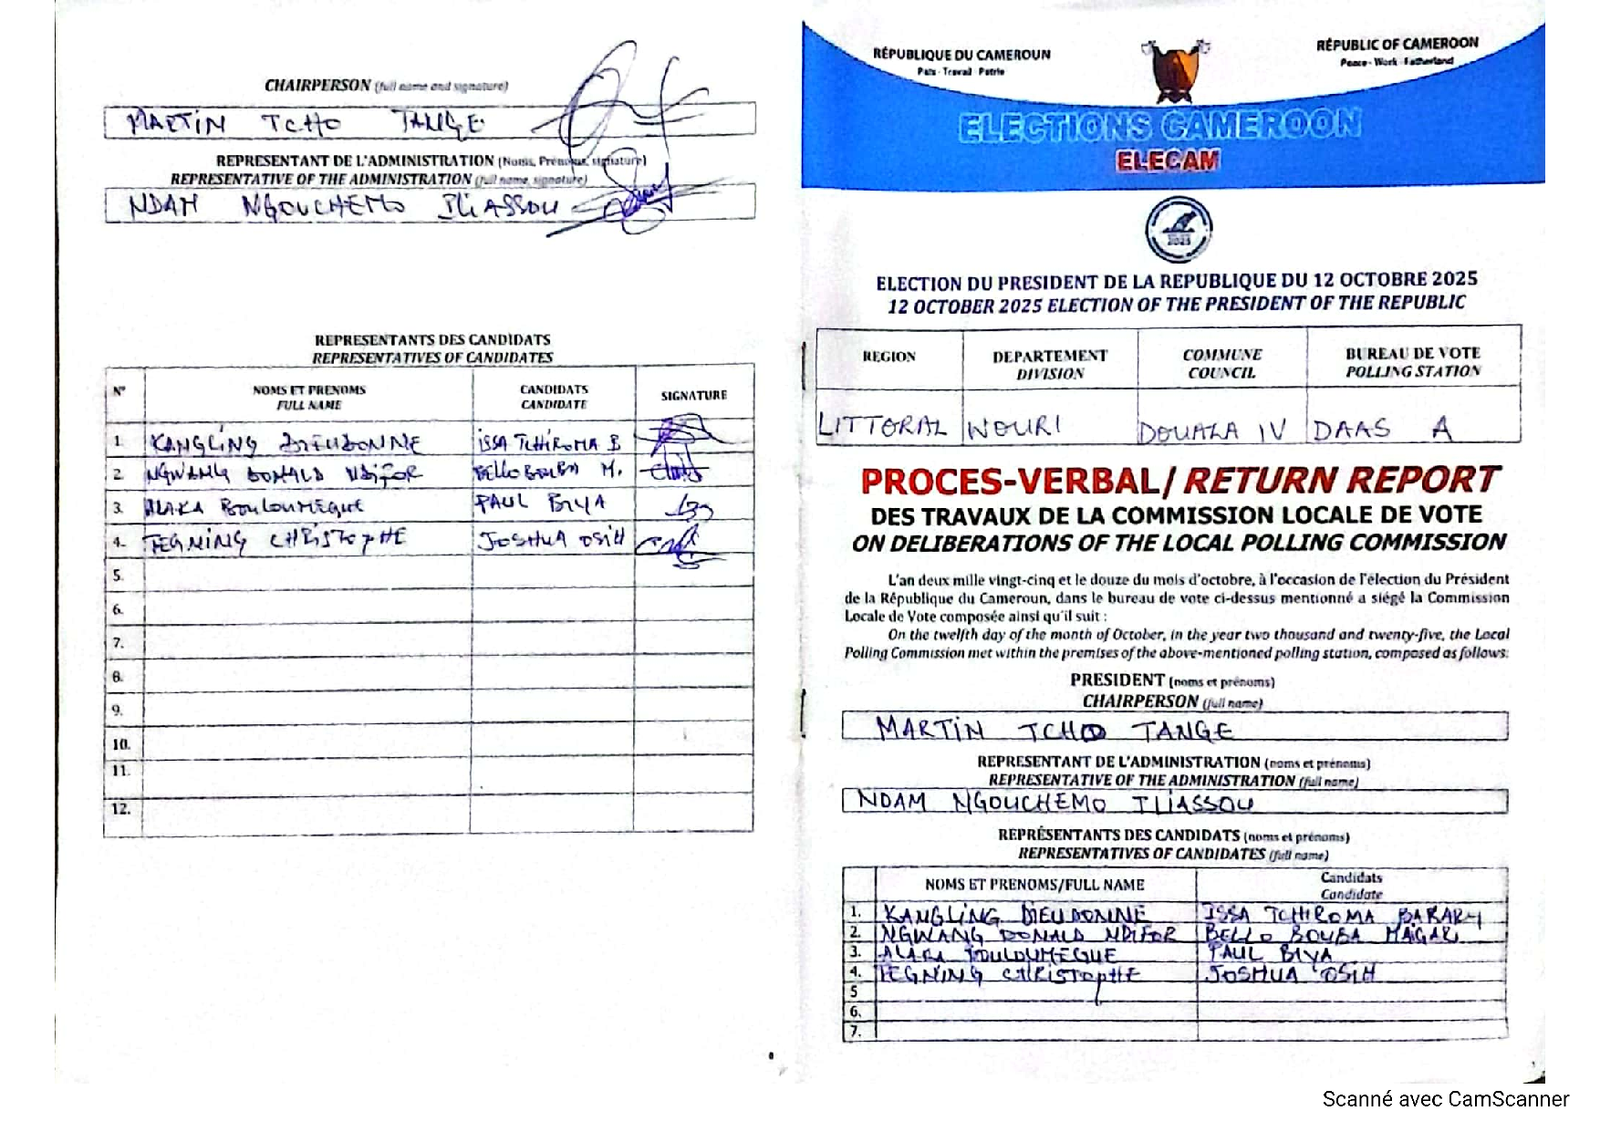 CHAIRPERSON (full name and signature)
MARTIN TCHO TANGE
REPRESENTANT DE L'ADMINISTRATION (Noms, Prénoms, signature)
REPRESENTATIVE OF THE ADMINISTRATION (full name, signature)
NDAM NGOUCHEMO ILIASSOU
REPRESENTANTS DES CANDIDATS
REPRESENTATIVES OF CANDIDATES
N° NOMS ET PRENOMS CANDIDATS SIGNATURE
FULL NAME CANDIDATE
1. KANGLING DIEUDONNE ISSA TCHIROMA B
2. NGWANG DONALD NDIFOR BELLO BOUBA M.
3. BOULOUMEGUE PAUL BIYA
4. TEGNING CHRISTOPHE JOSHUA OSIH
5.
6.
7.
8.
9.
10.
11.
12.
RÉPUBLIQUE DU CAMEROUN
Paix - Travail - Patrie
RÉPUBLIC OF CAMEROON
Peace - Work - Fatherland
ELECTIONS CAMEROON
ELECAM
2025
ELECTION DU PRESIDENT DE LA REPUBLIQUE DU 12 OCTOBRE 2025
12 OCTOBER 2025 ELECTION OF THE PRESIDENT OF THE REPUBLIC
REGION DEPARTEMENT COMMUNE BUREAU DE VOTE
DIVISION COUNCIL POLLING STATION
LITTORAL WOURI DOUALA IV DAAS A
PROCES-VERBAL/ RETURN REPORT
DES TRAVAUX DE LA COMMISSION LOCALE DE VOTE
ON DELIBERATIONS OF THE LOCAL POLLING COMMISSION
L'an deux mille vingt-cinq et le douze du mois d'octobre, à l'occasion de l'élection du Président
de la République du Cameroun, dans le bureau de vote ci-dessus mentionné a siégé la Commission
Locale de Vote composée ainsi qu'il suit :
On the twelfth day of the month of October, in the year two thousand and twenty-five, the Local
Polling Commission met within the premises of the above-mentioned polling station, composed as follows:
PRESIDENT (noms et prénoms)
CHAIRPERSON (full name)
MARTIN TCHO TANGE
REPRESENTANT DE L'ADMINISTRATION (noms et prénoms)
REPRESENTATIVE OF THE ADMINISTRATION (full name)
NDAM NGOUCHEMO ILIASSOU
REPRÉSENTANTS DES CANDIDATS (noms et prénoms)
REPRESENTATIVES OF CANDIDATES (full name)
NOMS ET PRENOMS/FULL NAME Candidats
Candidate
1. KANGLING DIEUDONNE ISSA TCHIROMA BAKARY
2. NGWANG DONALD NDIFOR BELLO BOUBA MAIGARI
3. BOULOUMEGUE PAUL BIYA
4. TEGNING CHRISTOPHE JOSHUA OSIH
5
6.
7.
Scanné avec CamScanner